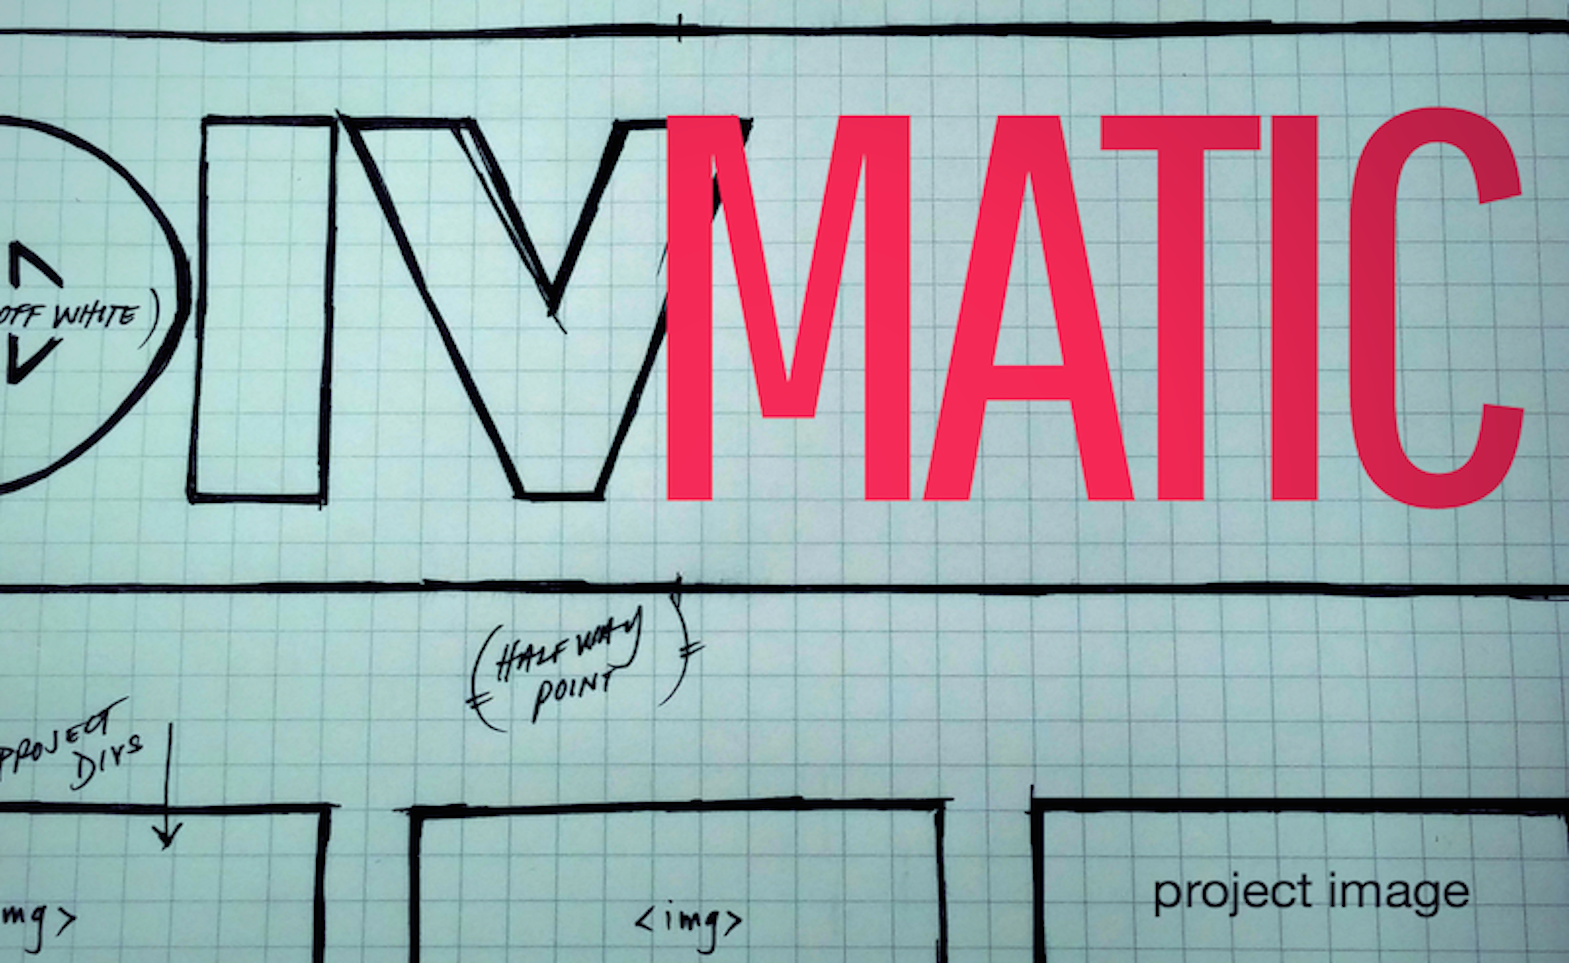 DIVMATIC
OFF WHITE )
(HALFWAY
POINT)
PROJECT
DIVS
mg>
<img>
project image